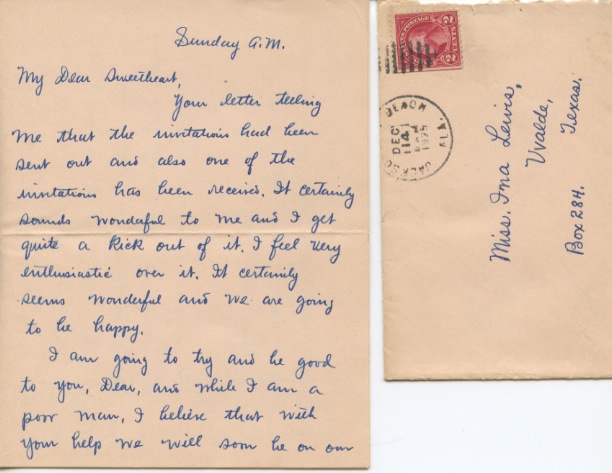 Sunday A.M.
My Dear Sweetheart,
Your letter telling
me that the invitations had been
sent out and also one of the
invitations has been received. It certainly
sounds wonderful to me and I get
quite a kick out of it. I feel very
enthusiastic over it. It certainly
seems wonderful and we are going
to be happy.
I am going to try and be good
to you, Dear, and while I am a
poor man, I believe that with
your help we will soon be on our
BEACH
DEC
14
1925
2 CENTS 2
Miss. Ima Lewis,
Uvalde,
Texas.
Box 284.